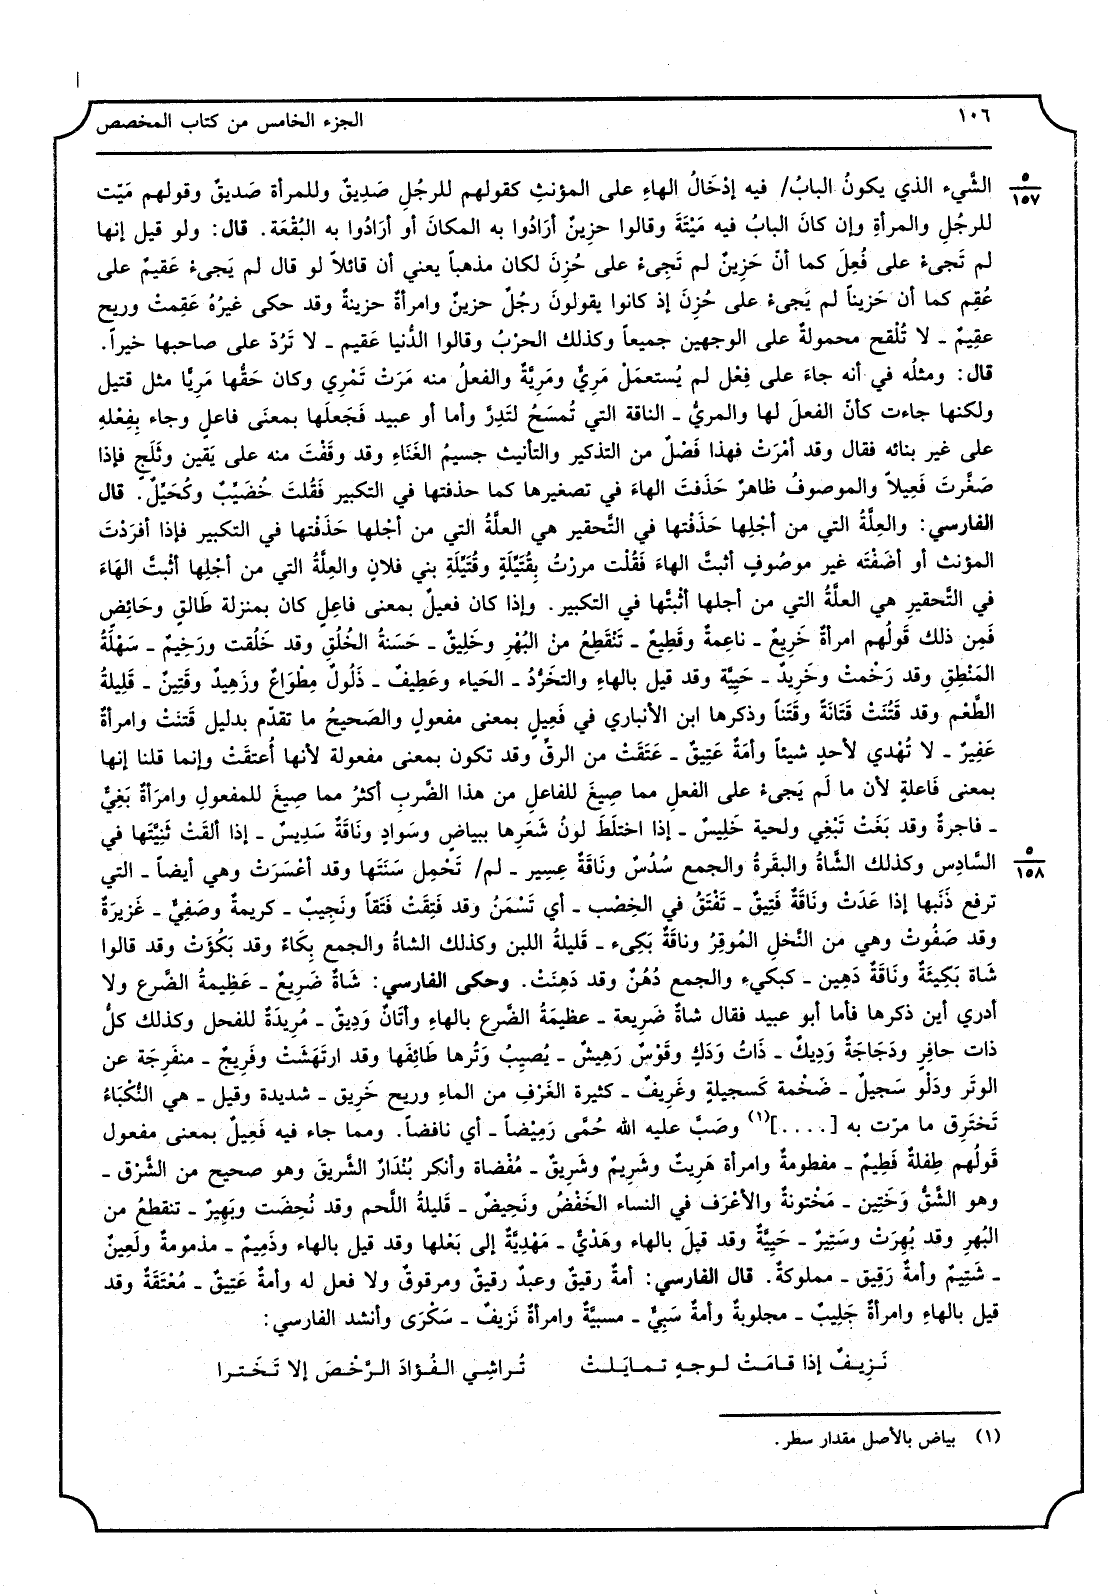 ١٠٦ الجزء الخامس من كتاب المخصص
٥
١٥٧
الشَّيء الذي يكونُ البابُ/ فيه إدْخَالُ الهاءِ على المؤنثِ كقولهم للرجُلِ صَدِيقٌ وللمرأة صَديقٌ وقولهم مَيّت
للرجُلِ والمرأةِ وإن كانَ البابُ فيه مَيْتَةً وقالوا حزِينٌ أرَادُوا به المكانَ أو أرَادُوا به البُقْعَة. قال: ولو قيل إنها
لم تَجىءْ على فُعِلَ كما أنّ حَزِينٌ لم تَجِىءْ على حُزِنَ لكان مذهباً يعني أن قائلاً لو قال لم يَجىءْ عَقيمٌ على
عُقِم كما أن حَزيناً لم يَجىءْ على حُزِنَ إذ كانوا يقولونَ رجُلٌ حزينٌ وامرأةٌ حزينةٌ وقد حكى غيرُهُ عَقِمتْ وريح
عقِيمٌ ـ لا تُلْقح محمولةٌ على الوجهين جميعاً وكذلك الحرْبُ وقالوا الدُّنيا عَقيم ـ لا تَرُدّ على صاحبها خيراً.
قال: ومثلُه في أنه جاءَ على فِعْل لم يُستعمَلْ مَرِيٌّ ومَرِيَّةٌ والفعلُ منه مَرَتْ تَمْرِي وكان حَقُّها مَرِيًّا مثل قتيل
ولكنها جاءت كأنّ الفعلَ لها والمريُّ ـ الناقة التي تُمسَحُ لتَدِرَّ وأما أو عبيد فَجَعلَها بمعنَى فاعلٍ وجاء بِفِعْلهِ
على غير بنائه فقال وقد أمْرَتْ فهذا فَصْلٌ من التذكير والتأنيث جسيمُ الغَنَاءِ وقد وقَفْتَ منه على يَقين وثَلَجٍ فإذا
صَغَّرتَ فَعِيلاً والموصوفُ ظاهرٌ حَذَفتَ الهاءَ في تصغيرها كما حذفتها في التكبير فَقُلتَ خُضَيِّبٌ وكُحَيِّلٌ. قال
الفارسي: والعِلَّةُ التي من أجْلِها حَذَفْتها في التَّحقير هي العلَّةُ التي من أجْلها حَذَفْتها في التكبير فإذا أفرَدْتَ
المؤنث أو أضَفْتَه غير موصُوفٍ أثبتَّ الهاءَ فَقُلْت مررْتُ بِقُتَيِّلَةٍ وقُتَيِّلَةِ بني فلانٍ والعِلَّةُ التي من أجْلِها أثْبتَّ الهَاءَ
في التَّحقيرِ هي العلَّةُ التي من أجلها أثبتَّها في التكبير. وإذا كان فعيلٌ بمعنى فاعِلٍ كان بمنزلة طَالقٍ وحَائِضٍ
فَمِن ذلك قَولُهم امرأةٌ خَرِيعٌ ـ ناعِمةٌ وقَطِيعٌ ـ تَنْقَطِعُ منْ البُهْرِ وخَلِيقٌ ـ حَسَنةُ الخُلُقِ وقد خَلُقت ورَخِيمٌ ـ سَهْلَةُ
المَنْطِقِ وقد رَخْمتْ وخَرِيدٌ ـ حَيِيَّة وقد قيل بالهاءِ والتخَرُّدُ ـ الحَياء وعَطِيفٌ ـ ذَلُولٌ مِطْوَاعٌ وزَهِيدٌ وقَتِينٌ ـ قَلِيلةُ
الطَّعْم وقد قَتُنَتْ قَتَانَةً وقَتَناً وذكرها ابن الأنباري في فَعِيلٍ بمعنى مفعولٍ والصَحيحُ ما تقدّم بدليل قَتنَتْ وامرأةٌ
عَفِيرٌ ـ لا تُهْدي لأحدٍ شيئاً وأمَةٌ عَتِيقٌ ـ عَتَقَتْ من الرقِّ وقد تكون بمعنى مفعولة لأنها أُعتقَتْ وإنما قلنا إنها
بمعنى فَاعلةٍ لأن ما لَم يَجىءْ على الفعل مما صِيغَ للفاعلِ من هذا الضَّربِ أكثرُ مما صِيغَ للمفعولِ وامرَأةٌ بَغِيٌّ
ـ فاجرةٌ وقد بَغَتْ تَبْغِي ولحية خَلِيسٌ ـ إذا اختلَطَ لونُ شَعَرِها ببياضٍ وسَوادٍ ونَاقَةٌ سَدِيسٌ ـ إذا ألقَتْ ثَنِيَّتَها في
٥
١٥٨
السَّادِس وكذلك الشَّاةُ والبقَرةُ والجمع سُدُسٌ ونَاقَةٌ عِسِير ـ لم/ تَحْمِل سَنَتَها وقد أعْسَرَتْ وهي أيضاً ـ التي
ترفع ذَنَبها إذا عَدَتْ ونَاقَةٌ فَتِيقٌ ـ تَفْتَقُ في الخِصْب ـ أي تَسْمَنُ وقد فَتِقَتْ فَتَقاً ونَجِيبٌ ـ كريمةٌ وصَفِيٌّ ـ غَزِيرَةٌ
وقد صَفُوتْ وهي من النَّخلِ المُوقِرُ وناقةٌ بَكِىء ـ قَلِيلةُ اللبن وكذلك الشاةُ والجمع بِكَاءٌ وقد بَكُؤَتْ وقد قالوا
شَاة بَكِيئَةٌ ونَاقَةٌ دَهِين ـ كبكيءٍ والجمع دُهُنٌ وقد دَهِنَتْ. وحكى الفارسي: شَاةٌ ضَرِيعٌ ـ عَظِيمةُ الضَّرعِ ولا
أدري أين ذكرها فأما أبو عبيد فقال شاةٌ ضَرِيعة ـ عظيمَةُ الضَّرع بالهاءِ وأتَانٌ وَدِيقٌ ـ مُرِيدَةٌ للفحل وكذلك كلُّ
ذات حافِرٍ ودَجَاجَةٌ وَدِيكٌ ـ ذَاتُ وَدَكٍ وقَوْسٌ رَهِيشٌ ـ يُصيبُ وَتُرها طَائِفَها وقد ارتَهَشَتْ وفَرِيجٌ ـ منفَرِجَة عن
الوتَر ودَلْو سَجيلٌ ـ ضَخْمة كَسجيلةٍ وغَرِيفٌ ـ كثيرة الغَرْفِ من الماءِ وريح خَرِيق ـ شديدة وقيل ـ هي النُّكْبَاءُ
تَختَرِق ما مرّت به [....](١) وصَبَّ عليه الله حُمَّى رَمِيْضاً ـ أي نافضاً. ومما جاء فيه فَعِيلٌ بمعنى مفعول
قَولُهم طِفلةٌ فَطِيمٌ ـ مفطومةٌ وامرأة هَرِيتٌ وشَرِيمٌ وشَرِيقٌ ـ مُفْضاة وأنكر بُنْدَارٌ الشَّريقَ وهو صحيح من الشَّرْق ـ
وهو الشَّقُّ وَخَتِين ـ مَخْتونةٌ والأعْرَف في النساء الخَفْضُ ونَحِيضٌ ـ قَليلةُ اللَّحم وقد نُحِضَت وبَهِيرٌ ـ تنقطعُ من
البُهرِ وقد بُهِرَتْ وسَتِيرٌ ـ حَيِيَّةٌ وقد قيلَ بالهاء وهَدْيٌّ ـ مَهْدِيَّةٌ إلى بَعْلها وقد قيل بالهاء وذَمِيمٌ ـ مذمومةٌ ولَعِينٌ
ـ شَتِيمٌ وأمةٌ رَقِيق ـ مملوكةٌ. قال الفارسي: أمةٌ رقيقٌ وعبدٌ رقيقٌ ومرقوقٌ ولا فعل له وأمةٌ عَتِيقٌ ـ مُعْتَقَةٌ وقد
قيل بالهاءِ وامرأةٌ جَلِيبٌ ـ مجلوبةٌ وأمةٌ سَبِيٌّ ـ مسبيَّةٌ وامرأةٌ نَزِيفٌ ـ سَكْرَى وأنشد الفارسي:
نَزِيفٌ إذا قامَتْ لوجهٍ تمايَلتْ تُراشِي الفُؤادَ الرَّخْصَ إلا تَخَترا
(١) بياض بالأصل مقدار سطر.